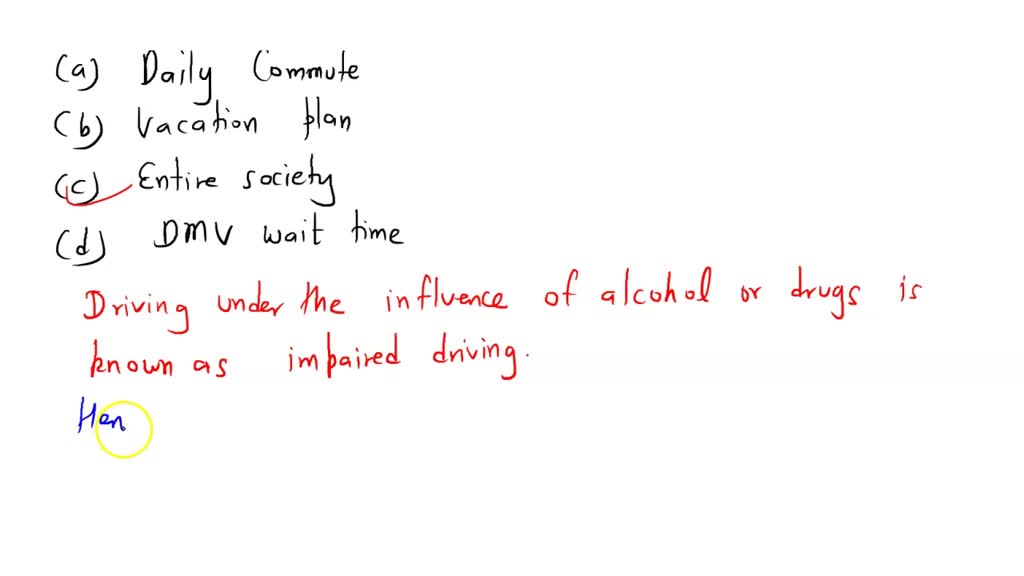 (a) Daily Commute
(b) Vacation plan
(c) Entire society
(d) DMV wait time
Driving under the influence of alcohol or drugs is
known as impaired driving.
Hen